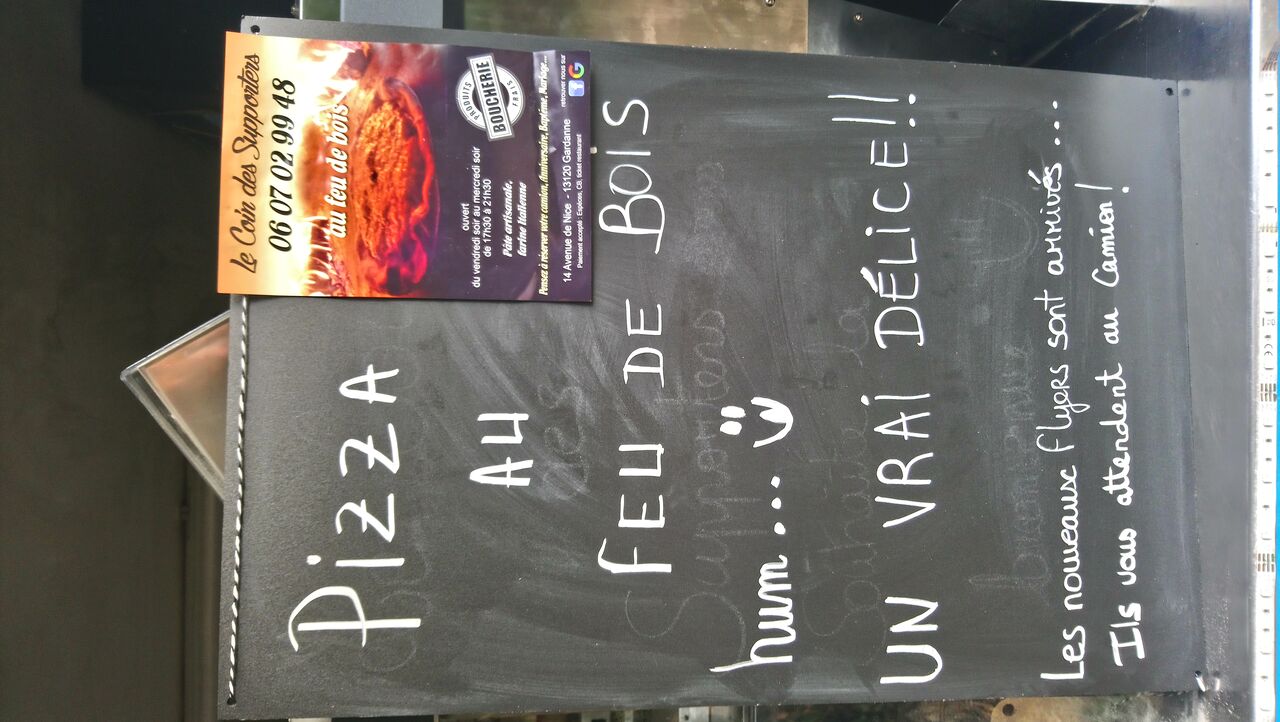 Le Coin des Supporters
06 07 02 99 48
au feu de bois
PRODUITS
BOUCHERIE
FRAIS
ouvert
du vendredi soir au mercredi soir
de 17h30 à 21h30
Pâte artisanale,
farine italienne
Pensez à réserver votre camion, Anniversaire, Baptême, Mariage...
retrouver nous sur
14 Avenue de Nice - 13120 Gardanne
Paiement accepté : Espèces, CB, ticket restaurant
PiZZA
AU
FEU DE BOIS
hum....
UN VRAI DÉLICE!!
Les nouveaux flyers sont arrivés...
Ils vous attendent au Camion!